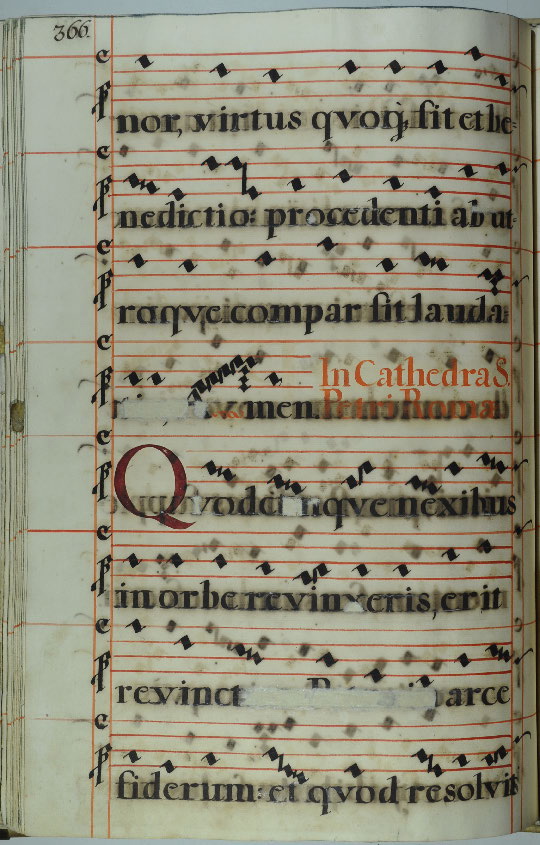 366.
nor, virtus quoq, sit et be-
nedictio: procedenti ab ut-
roque compar sit lauda
In Cathedra S.
men. Petri Romæ
Quodcunque nexibus
in orbe revinxeris, erit
revinct arce
siderum: et quod resolvit